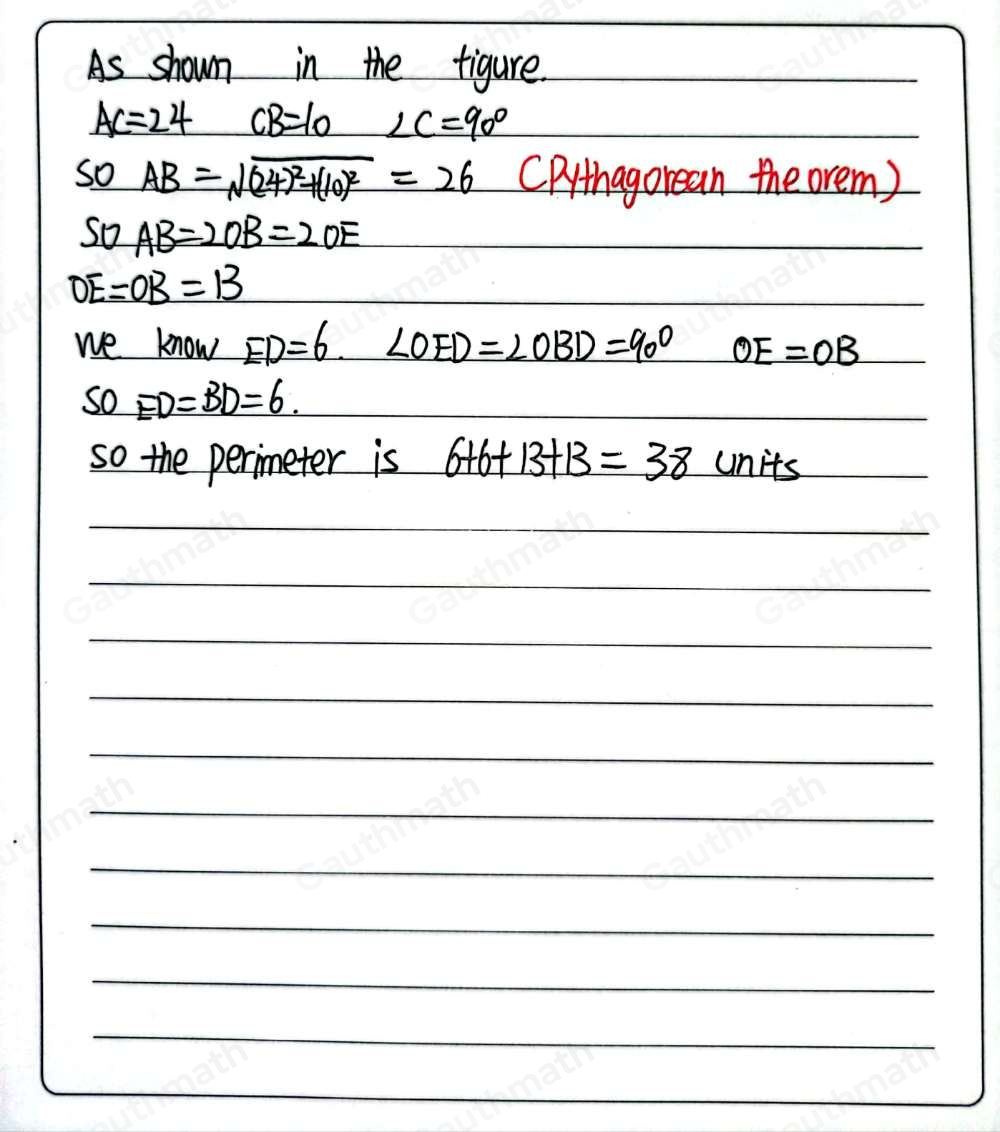 As shown in the figure.
AC=24 CB=10 ∠C=90°
SO AB = √(24)²+(10)² = 26 (Pythagorean theorem)
SO AB=2OB=2OE
OE=OB=13
we know ED=6. ∠OED=∠OBD=90° OE=OB
SO ED=BD=6.
so the perimeter is 6+6+13+13= 38 units
Gauthmath